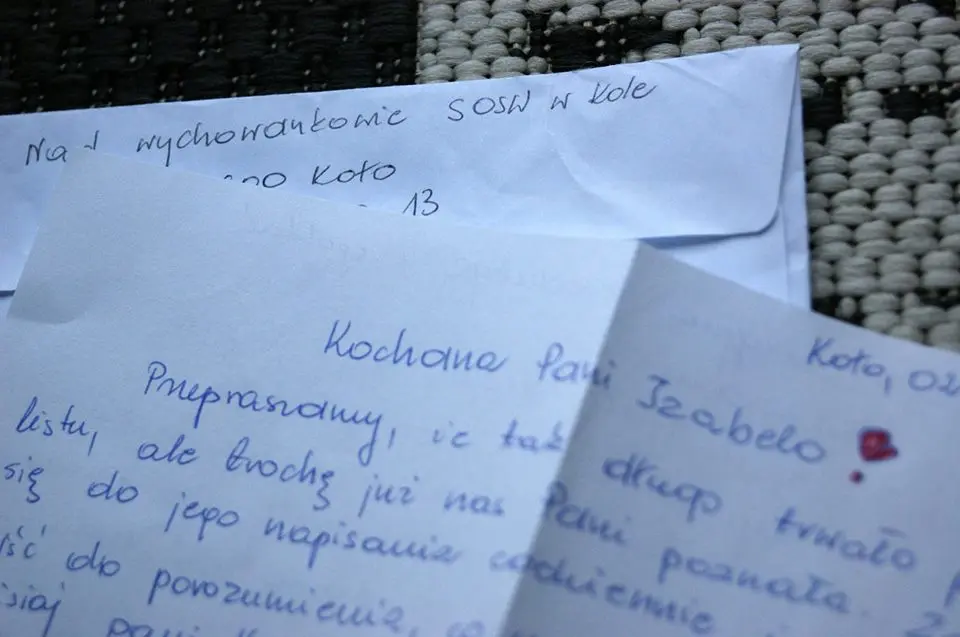 wychowankowie SOSW w Kole
Koło
13
Koło, 02
Kochana Pani Izabelo
Przepraszamy, że tak długo trwało
listu, ale trochę już nas Pani poznała.
się do jego napisania codziennie
do porozumienia,